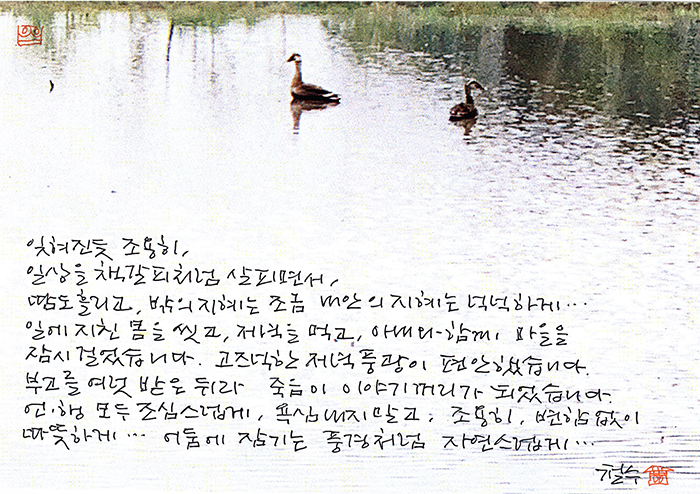 잊혀진듯 조용히,
일상을 책갈피처럼 살피면서,
땀도흘리고, 밖의지혜는 조금 내안의 지혜는 넉넉하게…
일에 지친 몸을 씻고, 저녁을 먹고, 아내와함께 마을을
잠시 걸었습니다. 고즈넉한 저녁풍광이 편안했습니다.
부고를 여럿 받은 뒤라 죽음이 이야기꺼리가 되었습니다.
언·행 모두 조심스럽게, 욕심내지말고, 조용히, 변함없이
따뜻하게… 어둠에 잠기는 풍경처럼 자연스럽게…
철수